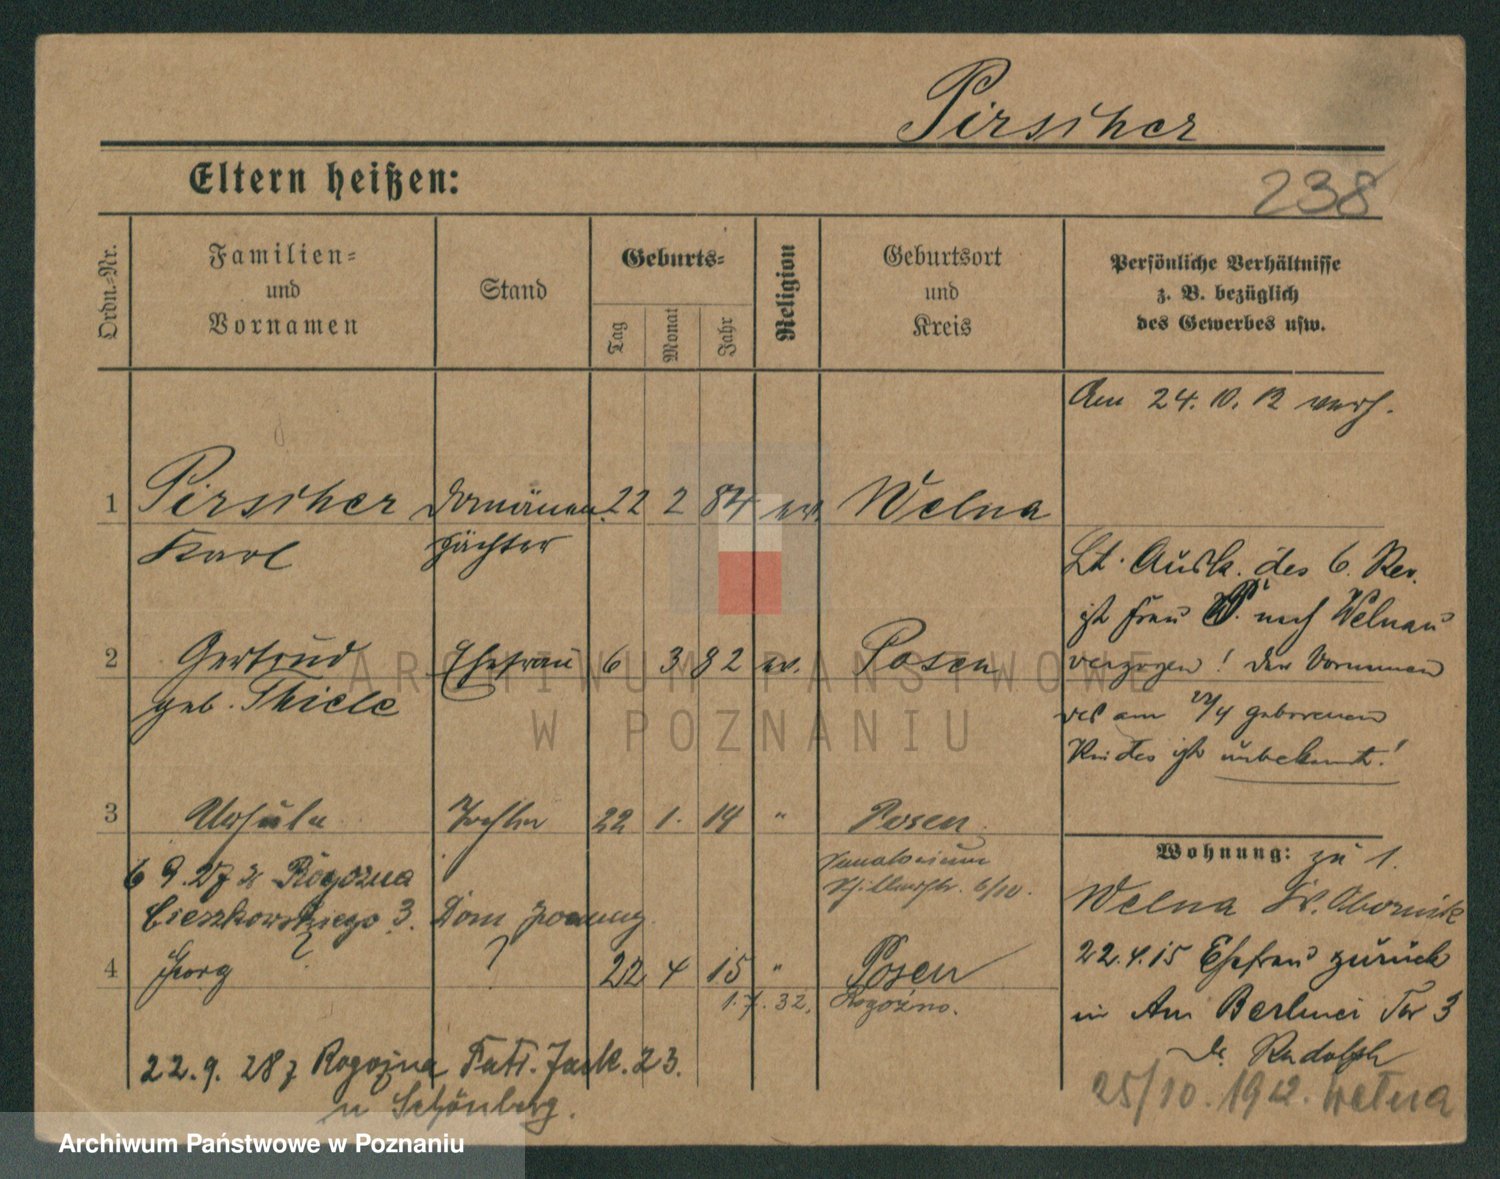 Pirscher
Eltern heißen:
238
Ordn.-Nr.
Familien-
und
Vornamen
Stand
Geburts-
Tag
Monat
Jahr
Religion
Geburtsort
und
Kreis
Persönliche Verhältnisse
z. B. bezüglich
des Gewerbes usw.
Am 24. 10. 12 verh.
1 Pirscher Domänen 22 2 84 ev. Welna
Karl pächter
Lt. Ausk. des 6. Rev.
ist Frau P. nach Welnau
2 Gertrud Ehefrau 6 3 82 ev. Posen
verzogen! Der Vornamen
geb. Thiele
des am 22/4 geborenen
Kindes ist unbekannt!
3 Ursula Tochter 22 1. 14 " Posen
Wohnung: zu 1.
Sanatorium
6 9. 27 z Rogozna
6/10.
Welna Kr. Obornik
Cieszkowskiego 3. Dom
22.4.15 Ehefrau zurück
4 Georg ? 22 4 15 " Posen
1. 7. 32. Rogoźno.
in Am Berliner Tor 3
b. Rudolph
22. 9. 28 z Rogozna Jack. 23.
25/10. 1912. Wełna
n Schönberg.
ARCHIWUM PAŃSTWOWE
W POZNANIU
Archiwum Państwowe w Poznaniu